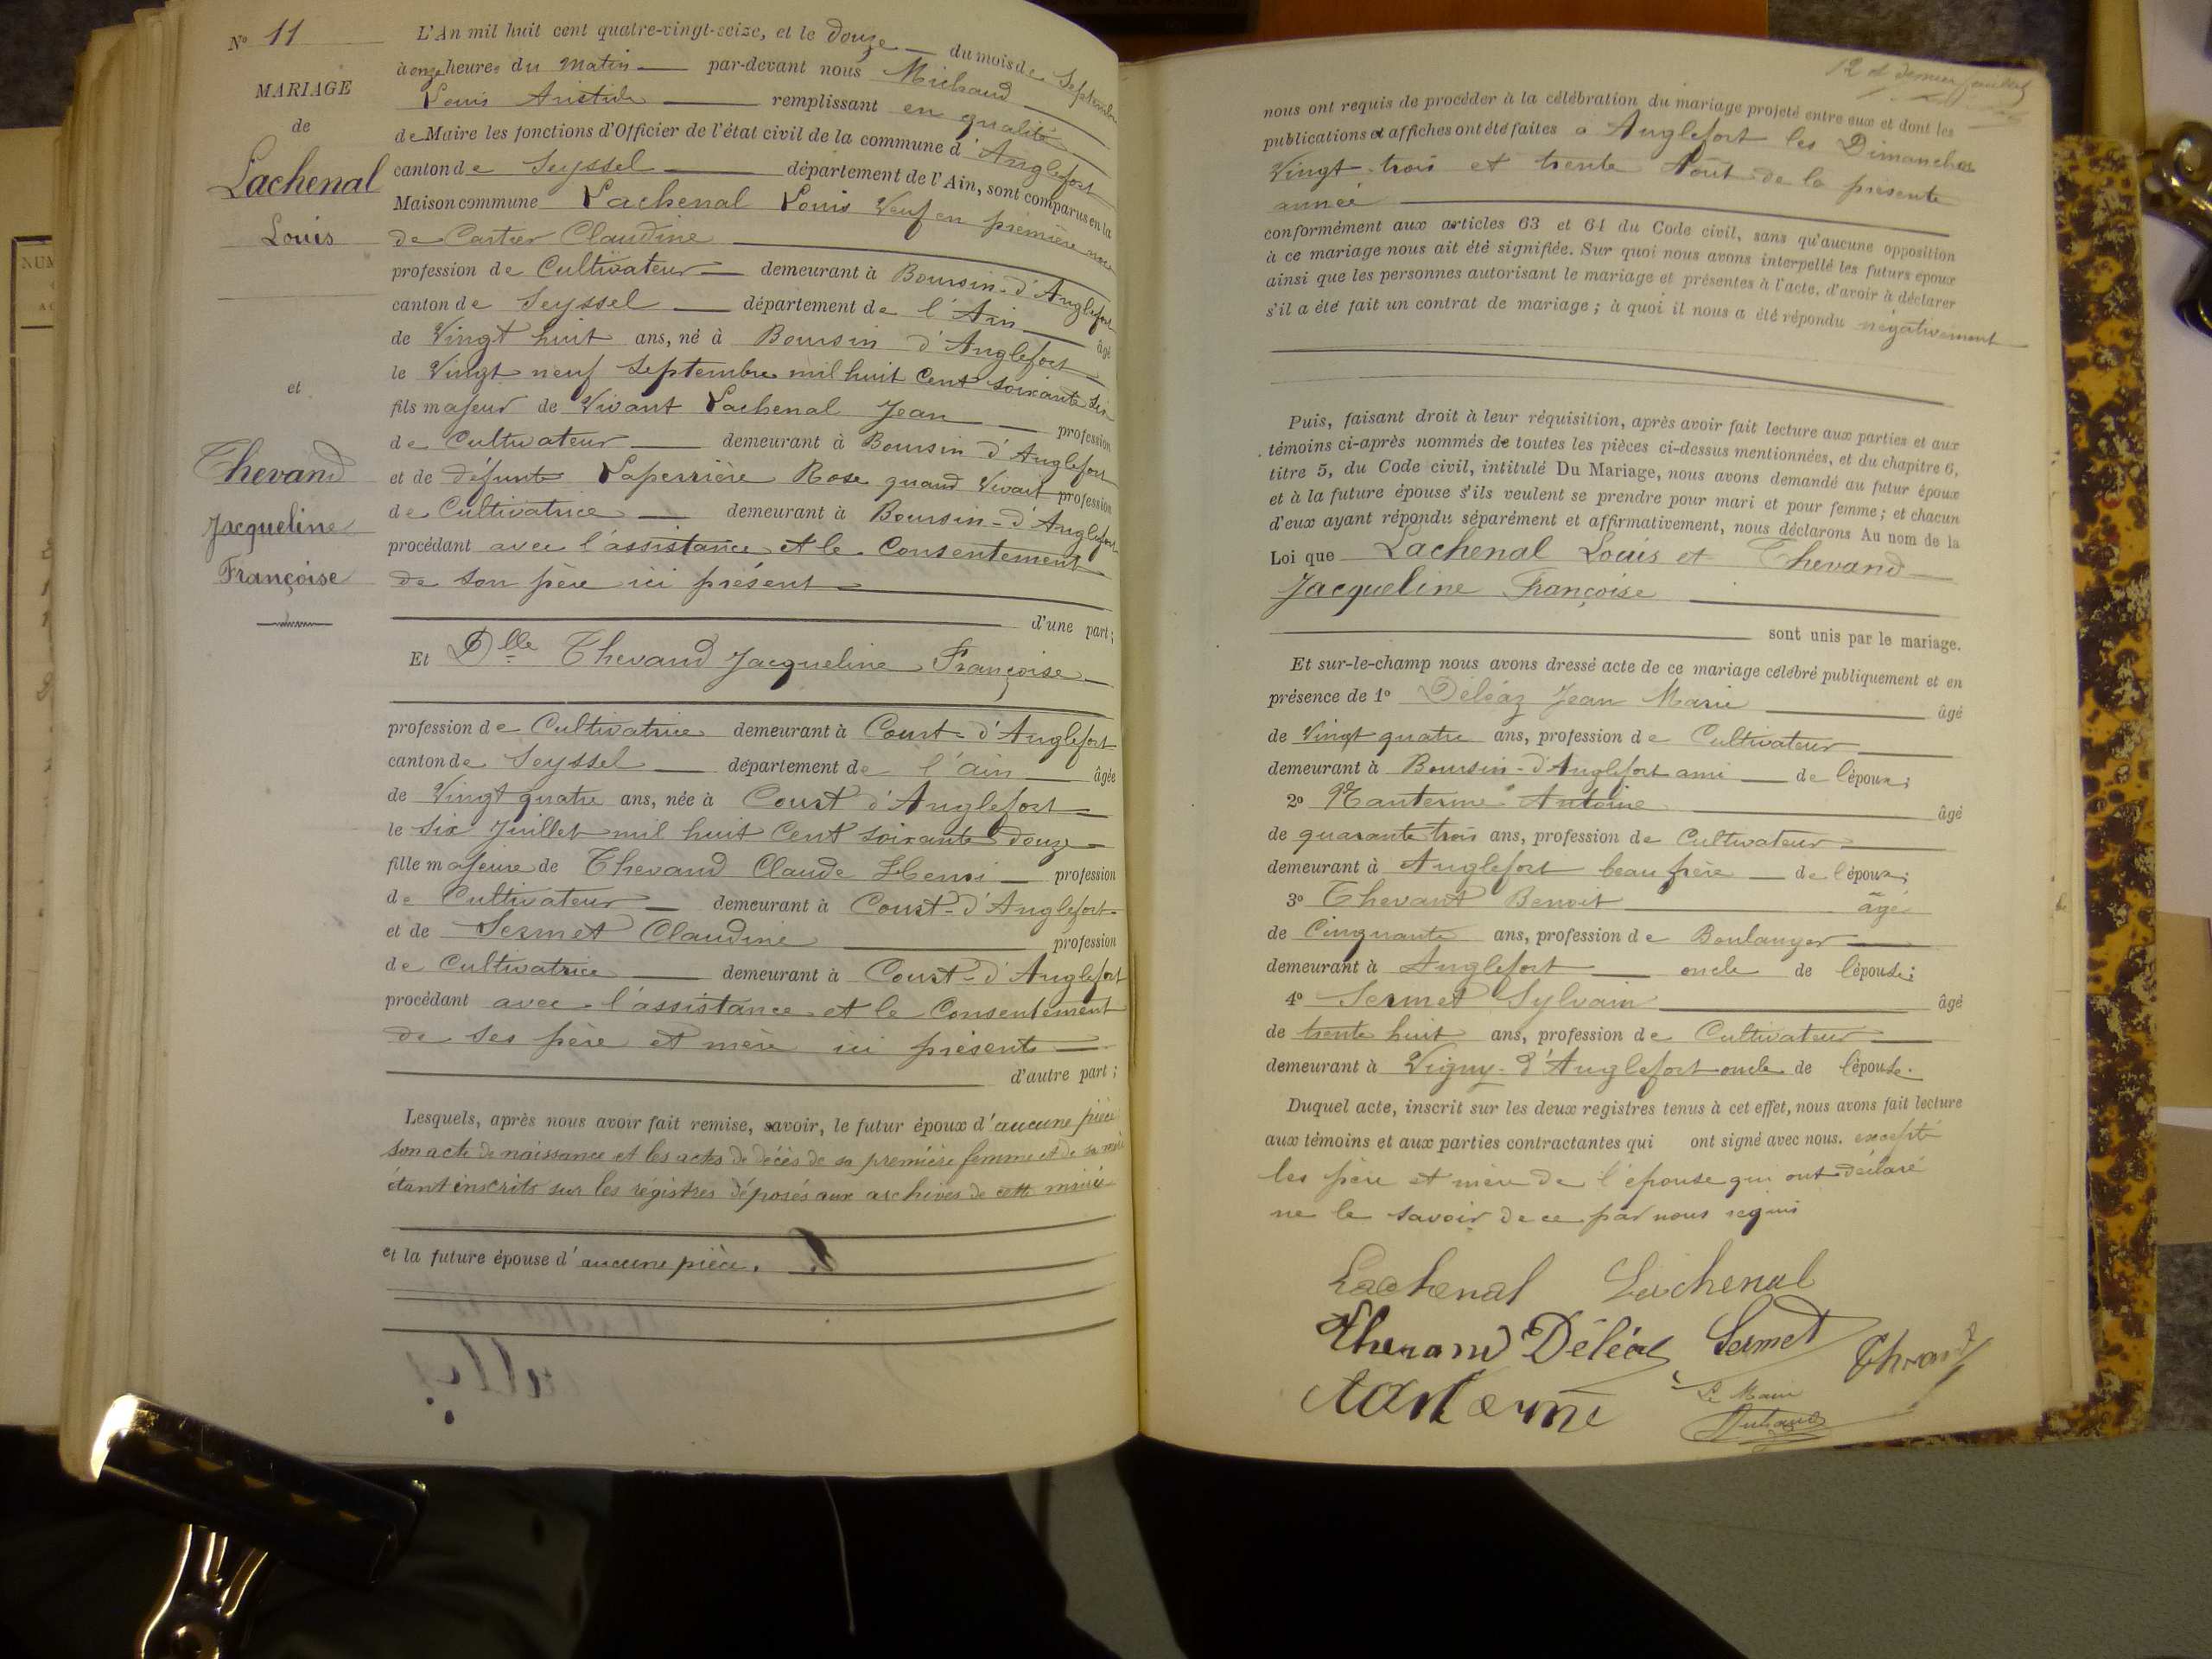 N° 11
MARIAGE
de
Lachenal
Louis
et
Thevand
Jacqueline
Françoise
L'An mil huit cent quatre-vingt-seize, et le douze du mois de Septembre
à onze heures du matin par-devant nous Michaud
Louis Aristide remplissant en qualité
de Maire les fonctions d'Officier de l'état civil de la commune d'Anglefort
canton de Seyssel département de l'Ain, sont comparus en la
Maison commune Lachenal Louis Veuf en première noce
de Cartier Claudine
profession de Cultivateur demeurant à Boursin-d'Anglefort
canton de Seyssel département de l'Ain âgé
de Vingt huit ans, né à Boursin d'Anglefort
le Vingt neuf Septembre mil huit Cent soixante six
fils majeur de Vivant Lachenal Jean profession
de Cultivateur demeurant à Boursin d'Anglefort
et de défunte Laperrière Rose quand Vivait profession
de Cultivatrice demeurant à Boursin-d'Anglefort
procédant avec l'assistance et le Consentement
de son père ici présent
d'une part;
Et Dlle Thevand Jacqueline Françoise
profession de Cultivatrice demeurant à Court-d'Anglefort
canton de Seyssel département de l'ain âgée
de Vingt quatre ans, née à Court d'Anglefort
le six Juillet mil huit Cent soixante douze
fille majeure de Thevand Claude Henri profession
de Cultivateur demeurant à Court-d'Anglefort
et de Sermet Claudine profession
de Cultivatrice demeurant à Court-d'Anglefort
procédant avec l'assistance et le Consentement
de ses père et mère ici présents
d'autre part;
Lesquels, après nous avoir fait remise, savoir, le futur époux d'aucune pièce
son acte de naissance et les actes de décès de sa première femme et de sa mère
étant inscrits sur les régistres déposés aux archives de cette mairie
et la future épouse d'aucune pièce.
12 et dernier feuillet
nous ont requis de procéder à la célébration du mariage projeté entre eux et dont les
publications et affiches ont été faites à Anglefort les Dimanches
Vingt-trois et trente Août de la présente
année
conformément aux articles 63 et 64 du Code civil, sans qu'aucune opposition
à ce mariage nous ait été signifiée. Sur quoi nous avons interpellé les futurs époux
ainsi que les personnes autorisant le mariage et présentes à l'acte, d'avoir à déclarer
s'il a été fait un contrat de mariage; à quoi il nous a été répondu négativement
Puis, faisant droit à leur réquisition, après avoir fait lecture aux parties et aux
témoins ci-après nommés de toutes les pièces ci-dessus mentionnées, et du chapitre 6,
titre 5, du Code civil, intitulé Du Mariage, nous avons demandé au futur époux
et à la future épouse s'ils veulent se prendre pour mari et pour femme; et chacun
d'eux ayant répondu séparément et affirmativement, nous déclarons Au nom de la
Loi que Lachenal Louis et Thevand
Jacqueline Françoise
sont unis par le mariage.
Et sur-le-champ nous avons dressé acte de ce mariage célébré publiquement et en
présence de 1° Déléaz Jean Marie âgé
de Vingt quatre ans, profession de Cultivateur
demeurant à Boursin-d'Anglefort ami de l'époux;
2° Nanterme Antoine âgé
de quarante trois ans, profession de Cultivateur
demeurant à Anglefort beau frère de l'époux;
3° Thevant Benoit âgé
de Cinquante ans, profession de Boulanger
demeurant à Anglefort oncle de l'épouse;
4° Sermet Sylvain âgé
de trente huit ans, profession de Cultivateur
demeurant à Vigny-d'Anglefort oncle de l'épouse.
Duquel acte, inscrit sur les deux registres tenus à cet effet, nous avons fait lecture
aux témoins et aux parties contractantes qui ont signé avec nous. excepté
les père et mère de l'épouse qui ont déclaré
ne le savoir de ce par nous requis
Lachenal Lachenal
Thevand Déléaz Sermet Thevand
Nanterme Le Maire
Michaud